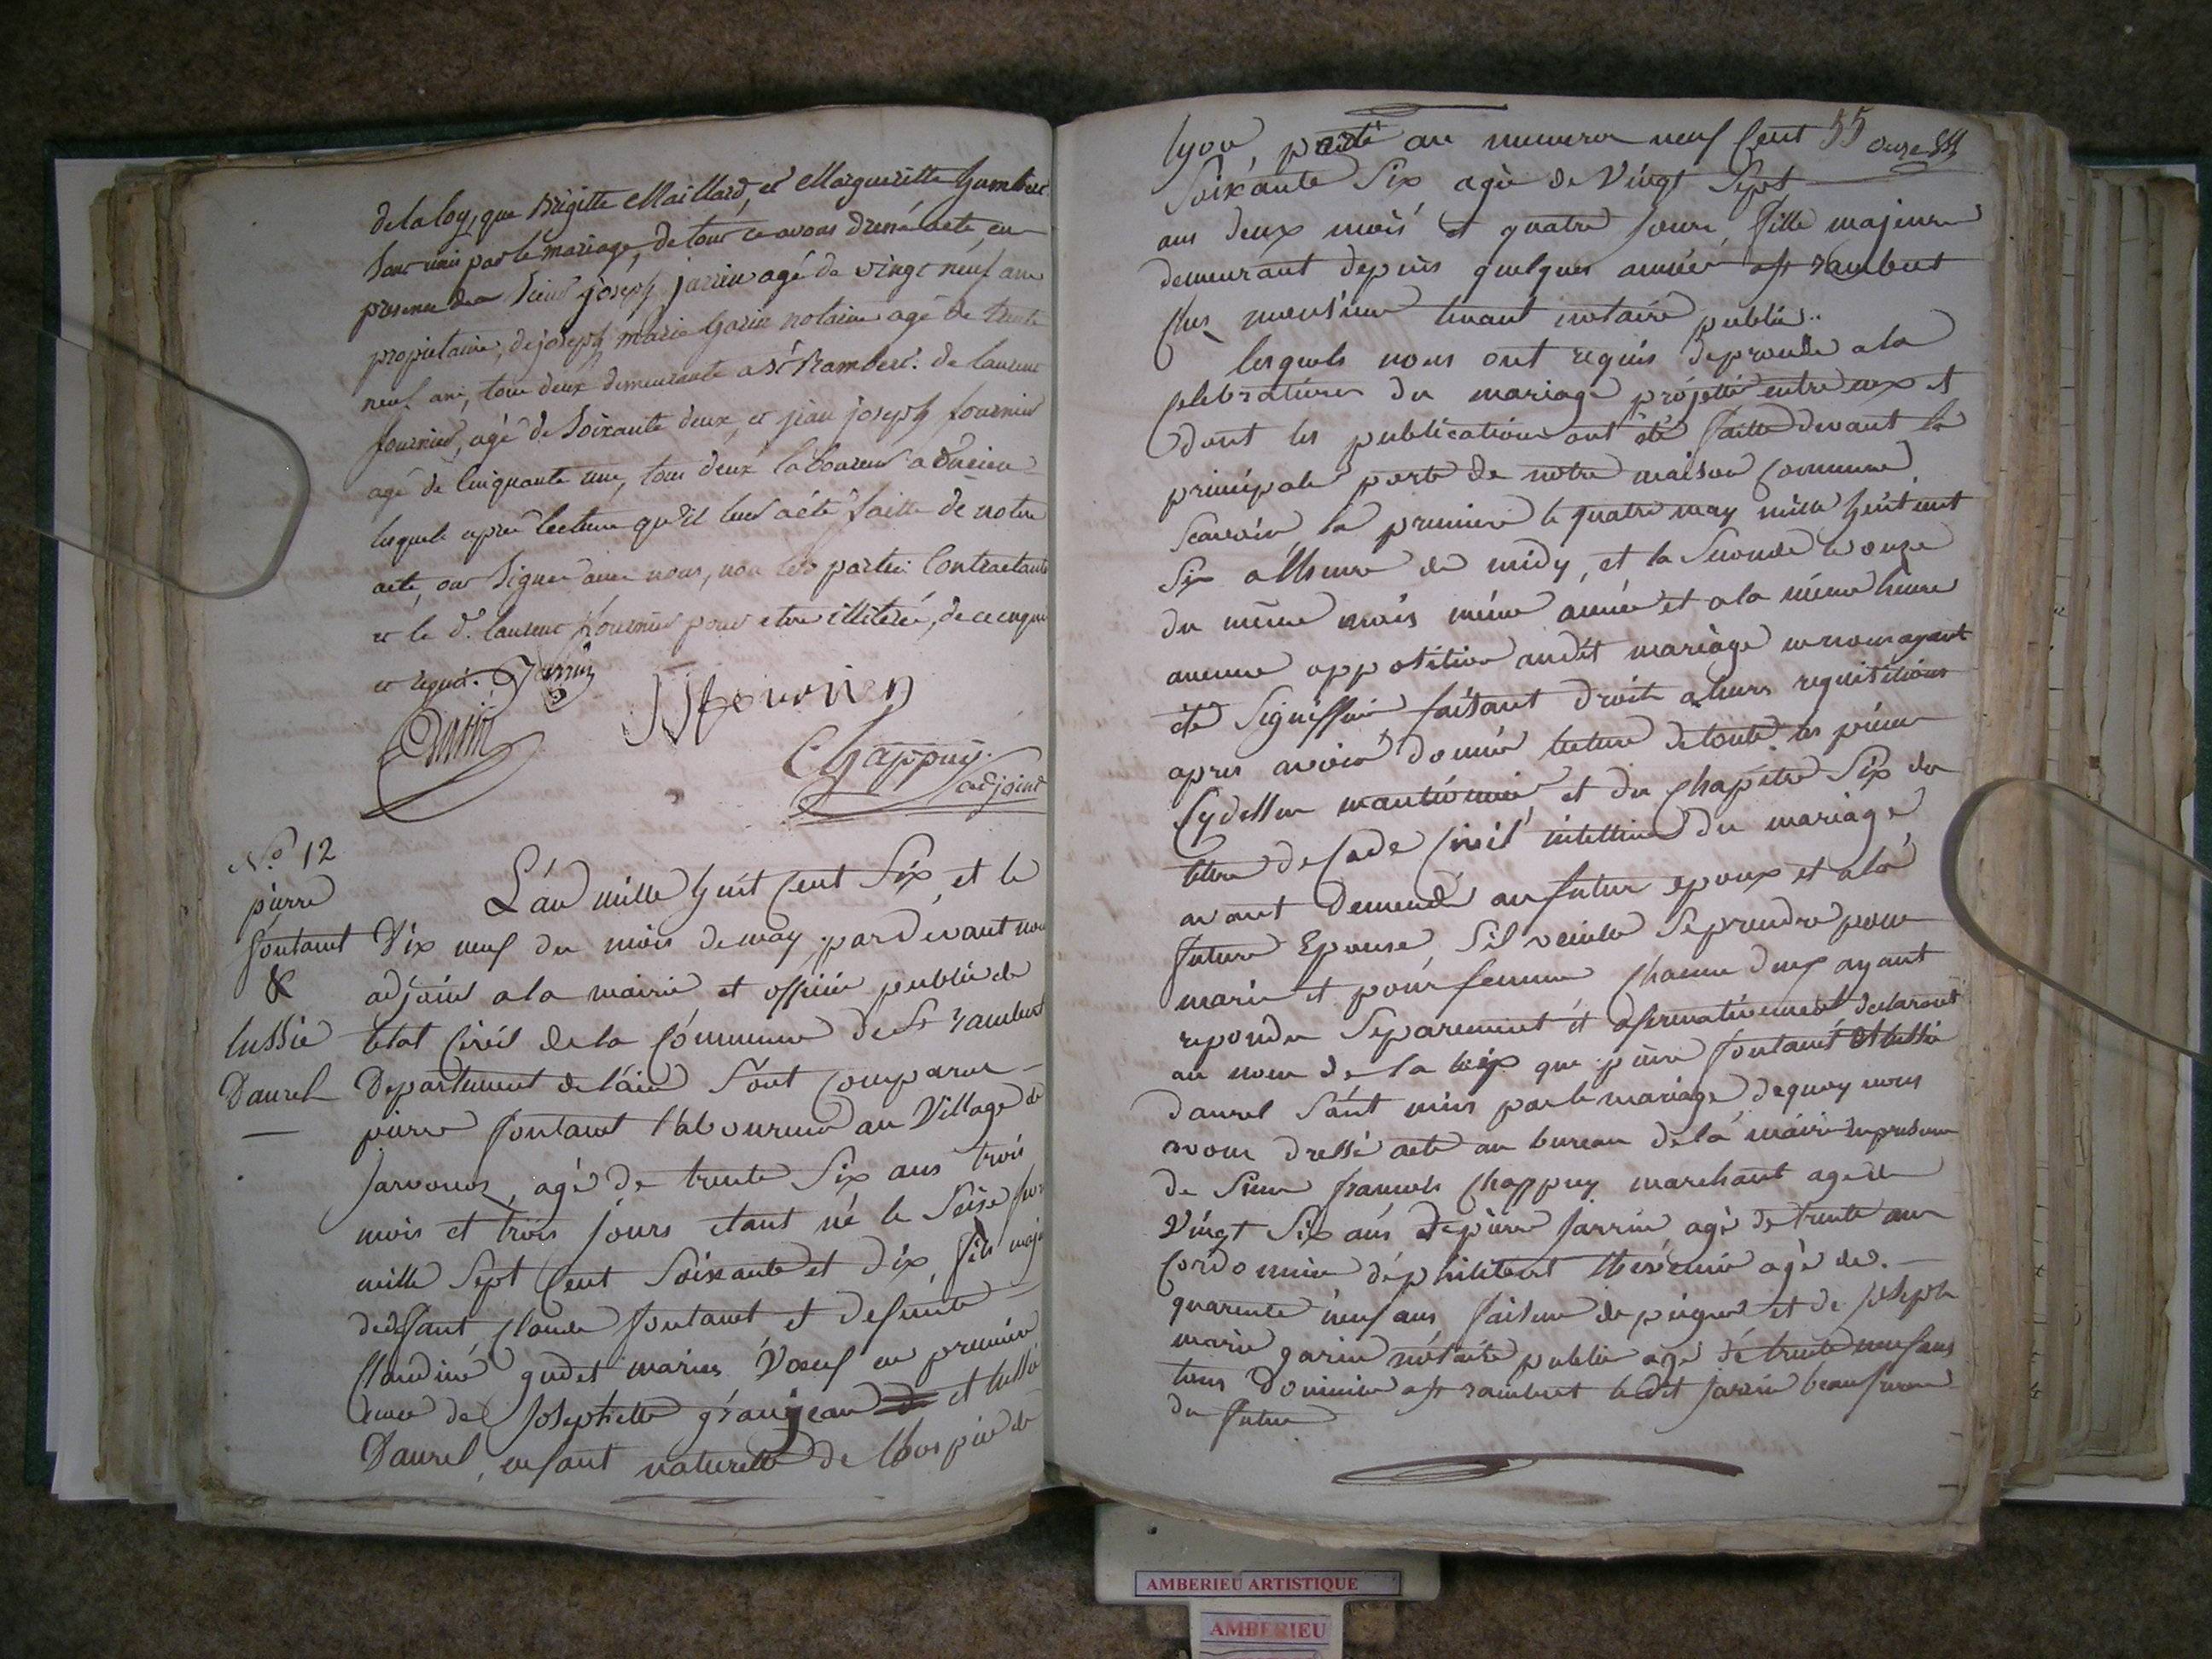 de la loy, que Brigitte Maillard, et Margueritte humbert
sont unis par le mariage, de tout ce avons dressé acte, en
presence de Sieur joseph jarrin agé de vingt neuf ans
propietaire, de joseph marie Garin notaire agé de trente
neuf ans, tous deux demeurants a St Rambert. de laurent
fournier, agé de soixante deux, et jean joseph fournier
agé de cinquante un, tous deux laboureurs a
lesquels apres lecture qu'il leur a été faitte de notre
acte, ont signer avec nous, non les parties Contractante
et le d. laurent fournier pour etre illiterée, de ce enquis
et requis. Jarrin
Garin
JJ fournier
Chappuy.
adjoint
No. 12
pierre
fontanet
&
lussie
Daurel
L'an mille huit Cent Six et le
Dix neuf du mois de may, par devant nous
adjoint a la mairie et officier publie de
letat Civil de la Commune de St rambert
Departement de l'ain Sont Comparus
pierre fontanet laboureur au Village de
Javornoz, agé de trente Six ans trois
mois et trois jours etant né le Seise
mille Sept Cent Soixante et Dix, fils maj
de deffunt Claude fontanet et defunte
Claudine gudet mariés Voeuf en premiere
de Josephette granjean et lussie
Daurel, enfant naturelle de l'hospice de
lyon, porté au numero neuf Cent 55 onze
Soixante Six agée de Vingt Sept
ans deux mois et quatre jours, fille majeure
demeurant depuis quelques année a St rambert
Ches monsieur tenant notaire publie..
lesquels nous ont requis de proceder a la
celebrations du mariage projetté entre eux et
dont les publications ont été faitte devant la
principale porte de notre maison Commune
Scavoir, la premiere le quatre may mille huit cent
Six a l'heure de midy, et la Seconde le onze
du même mois même année et a la même heure
aucune opposition audit mariage ne nous ayant
été Signiffiée faisant droit a leurs requisitions
apres avoir donnée lecture de toute les pieces
Cy dessus mantionnée, et du Chapitre Six du
titre de Code Civil intittuée du mariage
avons demendé au futur epoux et a la
future Epouse, Sil veulent Se prendre pour
marie et pour femme Chacun deux ayant
repondu Separement et afirmativement declarons
au nom de la loix que pierre fontanet et lussie
daurel Sont unis par le mariage de quoy nous
avons dressé acte au bureau de la mairie en presence
de Sieur francois Chappuy marchant age de
Vingt Six ans de pierre Jarrin, agé de trente ans
Cordonnier de philibert agé de.
quarente neuf ans faiseur de peignes et de joseph
marie garin notaire publie age de trente neuf ans
tous Domicilie a St rambert ledit Jarrin beau frere
du futur
AMBERIEU ARTISTIQUE
AMBERIEU